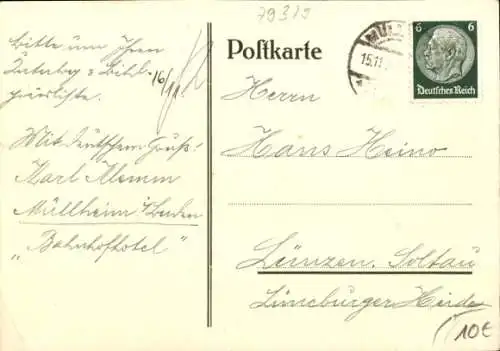 79319
Bitte um Ihren
Katalog & Bild-
preisliste.
16/11
Mit deutschem Gruß!
Karl Klemm
Müllheim i/Baden
"Bahnhofhotel"
Postkarte
MÜLL
15.11.
6 6
Deutsches Reich
Herrn
Hans Heino
Lünzen. Soltau
Lüneburger Heide
10€